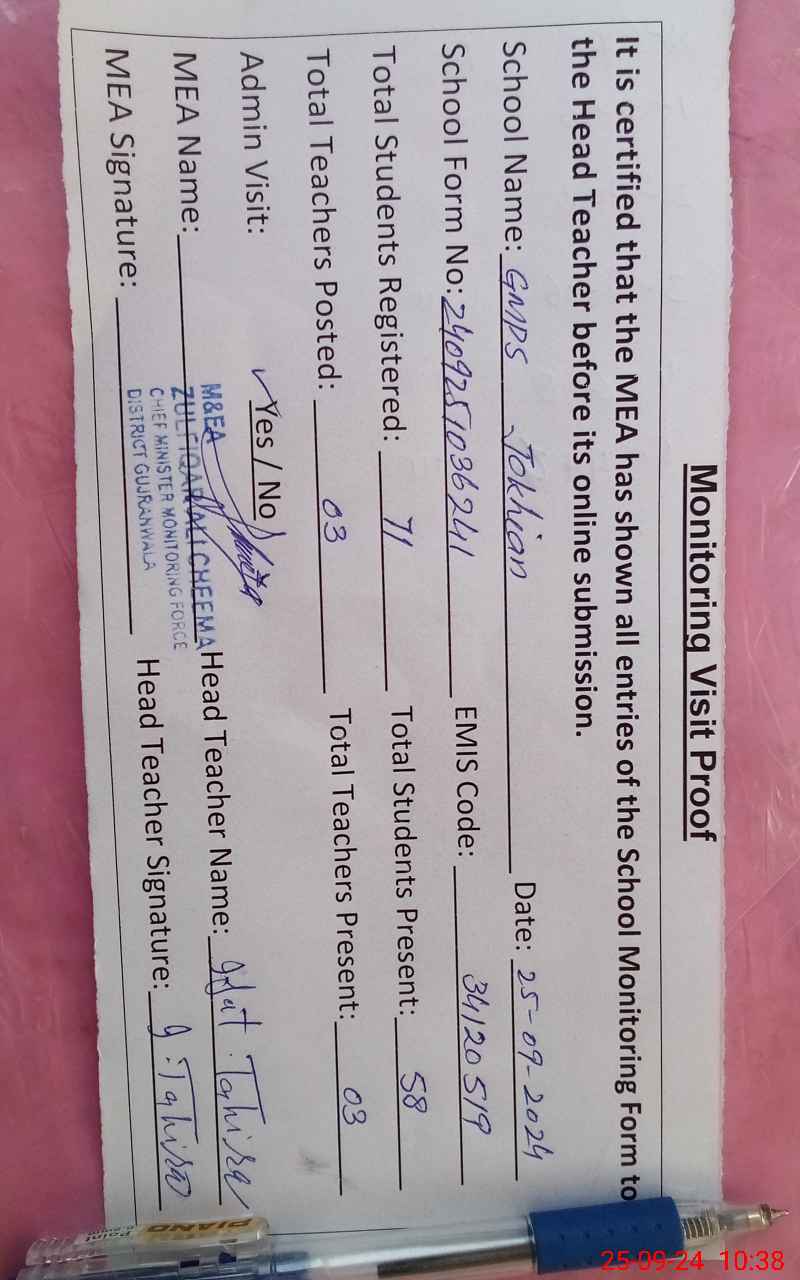 Monitoring Visit Proof
It is certified that the MEA has shown all entries of the School Monitoring Form to
the Head Teacher before its online submission.
School Name: GMPS Jokhian Date: 25-09-2024
School Form No: 2409251036241 EMIS Code: 34120519
Total Students Registered: 71 Total Students Present: 58
Total Teachers Posted: 03 Total Teachers Present: 03
Admin Visit: ✓Yes / No
MEA Name: Head Teacher Name: Tahira
MEA Signature: Head Teacher Signature: g.Tahira
M&EA
ZULFIQAR ALI CHEEMA
CHIEF MINISTER MONITORING FORCE
DISTRICT GUJRANWALA
PIANO
Point
25-09-24 10:38